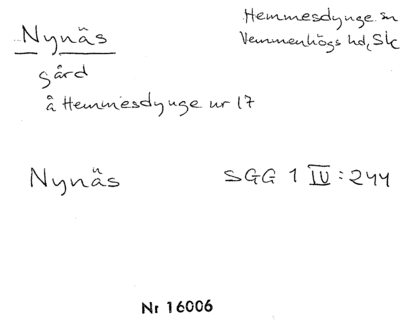 Nynäs
Hemmesdynge sn
Vemmenhögs hd, Sk
gård
å Hemmesdynge nr 17
Nynäs
SGG 1 IV : 244
Nr 16006